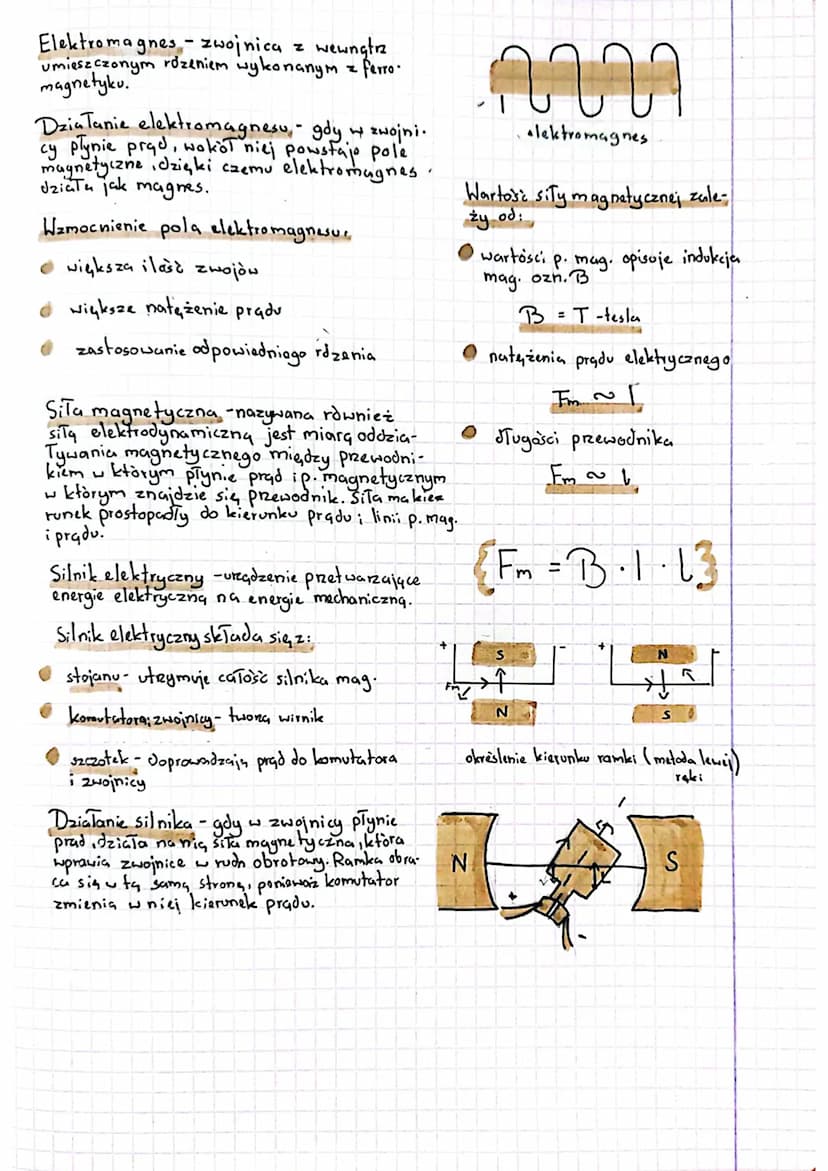 Elektromagnes - zwojnica z wewnątrz
umieszczonym rdzeniem wykonanym z ferro-
magnetyku.
Działanie elektromagnesu - gdy w zwojni-
cy płynie prąd, wokół niej powstaje pole
magnetyczne, dzięki czemu elektromagnes
działa jak magnes.
Wzmocnienie pola elektromagnesu:
większa ilość zwojów
większe natężenie prądu
zastosowanie odpowiedniego rdzenia
Siła magnetyczna - nazywana również
siłą elektrodynamiczną jest miarą oddzia-
ływania magnetycznego między przewodni-
kiem w którym płynie prąd i p. magnetycznym
w którym znajdzie się przewodnik. Siła ma kie-
runek prostopadły do kierunku prądu i linii p. mag.
i prądu.
Silnik elektryczny - urządzenie przetwarzające
energie elektryczną na energie mechaniczną.
Silnik elektryczny składa się z:
stojanu - utrzymuje całość silnika mag.
komutatora i zwojnicy - tworzą wirnik
szczotek - doprowadzają prąd do komutatora
i zwojnicy
Działanie silnika - gdy w zwojnicy płynie
prąd, działa na nią siła magnetyczna, która
wprawia zwojnice w ruch obrotowy. Ramka obra-
ca się w tą samą stronę, ponieważ komutator
zmienia w niej kierunek prądu.
elektromagnes
Wartość siły magnetycznej zale-
ży od:
wartości p. mag. opisuje indukcja
mag. ozn. B
B = T - tesla
natężenia prądu elektrycznego
Fm ~ I
długości przewodnika
Fm ~ l
{Fm = B · I · l}
+ S - + N -
Fm
N S
określenie kierunku ramki (metoda lewej)
ręki
N S
+
-